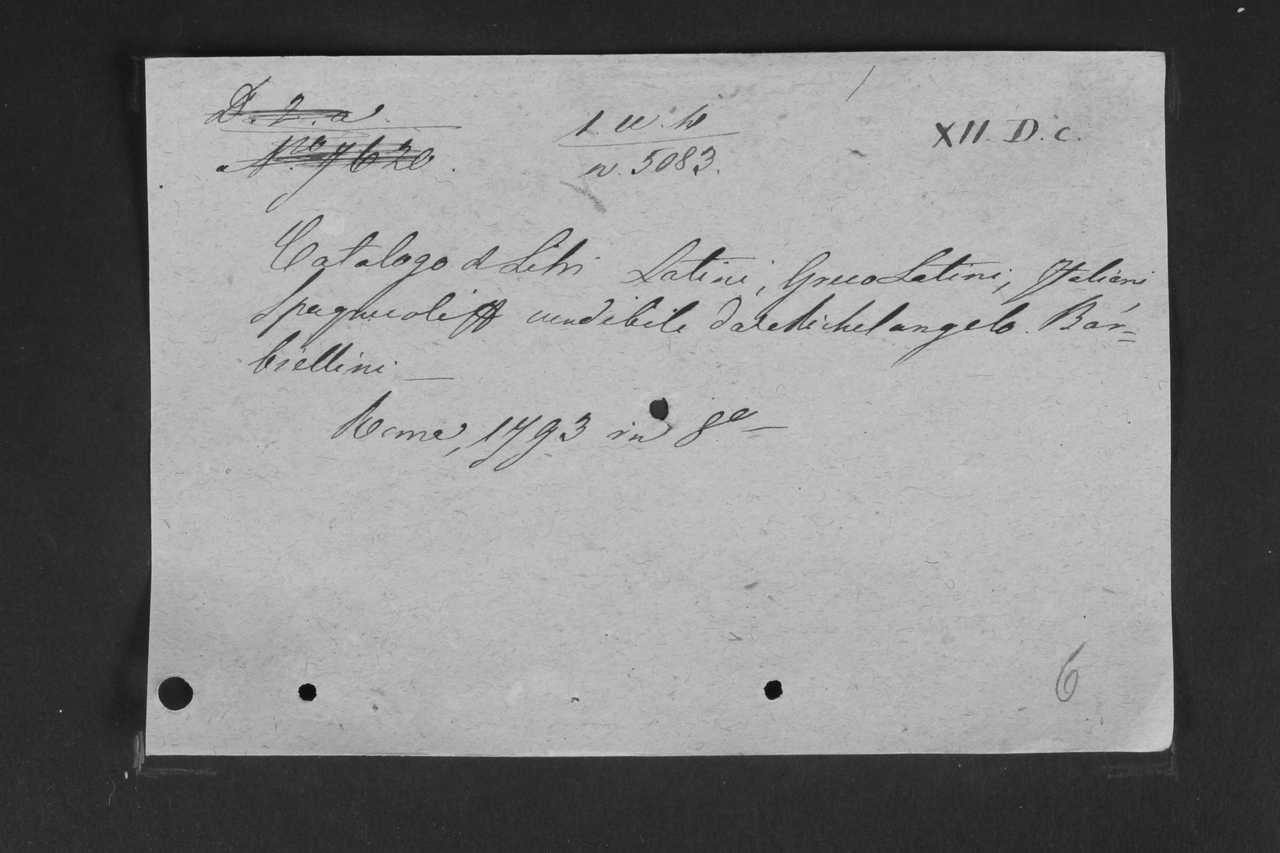 D. 2. a.
Nro 7620.
n. 5083.
XII. D. c.
Catalogo d Libri Latini, Greco Latini, Italiani
Spagnuoli vendibile da Michelangelo Bar=
biellini —
Roma, 1793 in 8o —
6